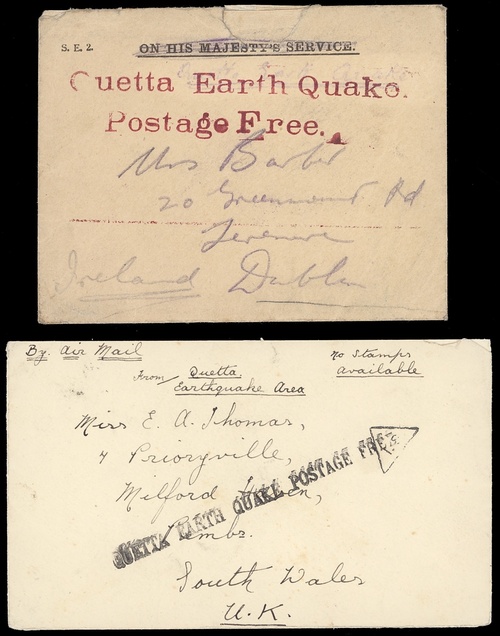 S. E. 2.
ON HIS MAJESTY'S SERVICE.
Quetta Earth Quake.
Postage Free.
Mrs Barber
20 Greenmount Rd
Terenure
Ireland Dublin
By Air Mail
No Stamps
Available
From Quetta
Earthquake Area
Miss E. A. Thomas,
4 Prioryville,
Milford Haven,
Pembs.
QUETTA EARTH QUAKE POSTAGE FREE
South Wales
U.K.